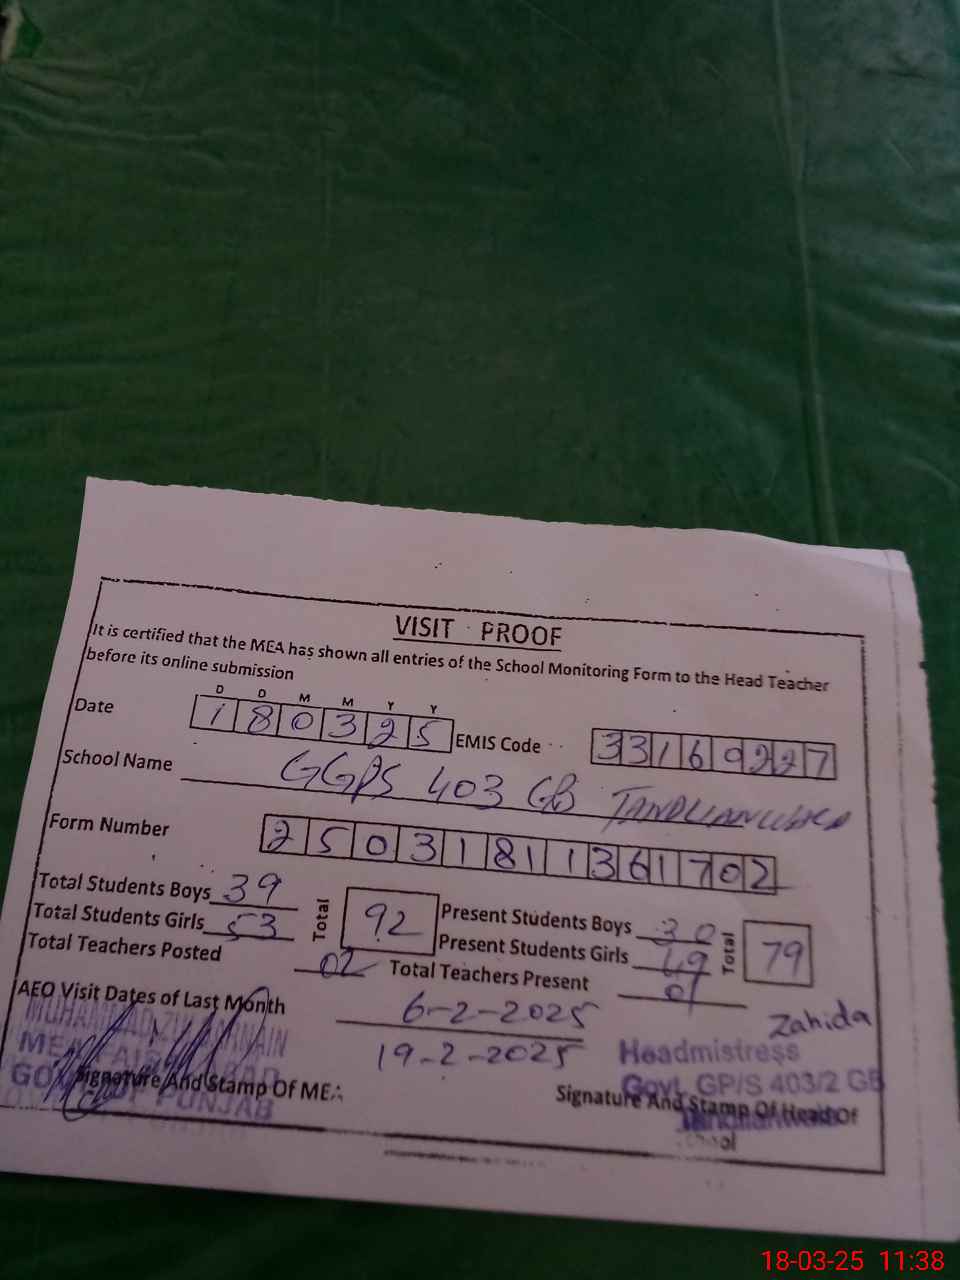 VISIT PROOF
It is certified that the MEA has shown all entries of the School Monitoring Form to the Head Teacher
before its online submission
D D M M Y Y
Date 180325 EMIS Code 33169227
School Name GGPS 403 GB TANDLIANWALA
Form Number 25031811361702
Total Students Boys 39 Total 92 Present Students Boys 30 Total 79
Total Students Girls 53 Present Students Girls 49
Total Teachers Posted 02 Total Teachers Present 01
AEO Visit Dates of Last Month 6-2-2025
19-2-2025
Zahida
MUHAMMAD
MEA FAISALABAD
GOVT OF PUNJAB
Signature And Stamp Of MEA
Headmistress
Govt. GP/S 403/2 GB
Tandlianwala
Signature And Stamp Of Head Of
School
18-03-25 11:38